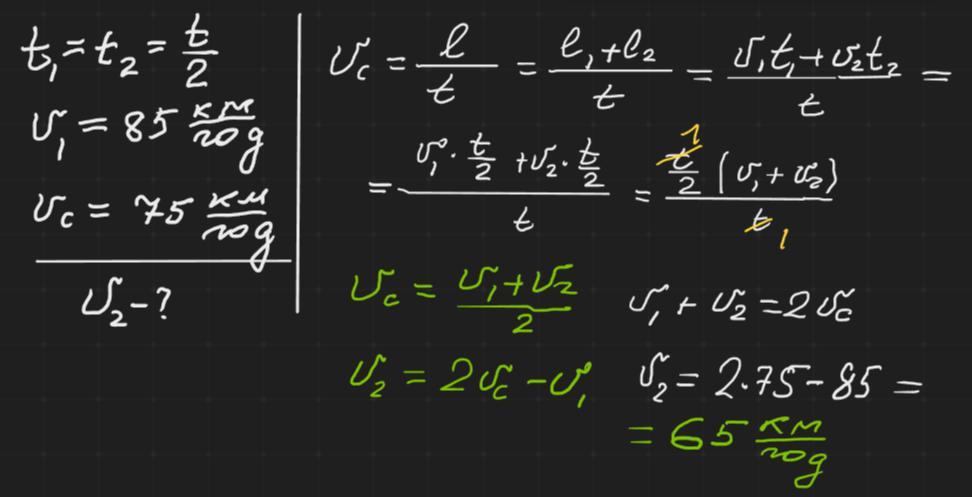 t₁ = t₂ = t/2
v₁ = 85 км/год
v_c = 75 км/год
v₂ - ?
v_c = l/t = (l₁ + l₂)/t = (v₁t₁ + v₂t₂)/t =
= (v₁ · t/2 + v₂ · t/2)/t = (t/2 (v₁ + v₂))/t
1
1
v_c = (v₁ + v₂)/2
v₁ + v₂ = 2v_c
v₂ = 2v_c - v₁
v₂ = 2·75 - 85 =
= 65 км/год